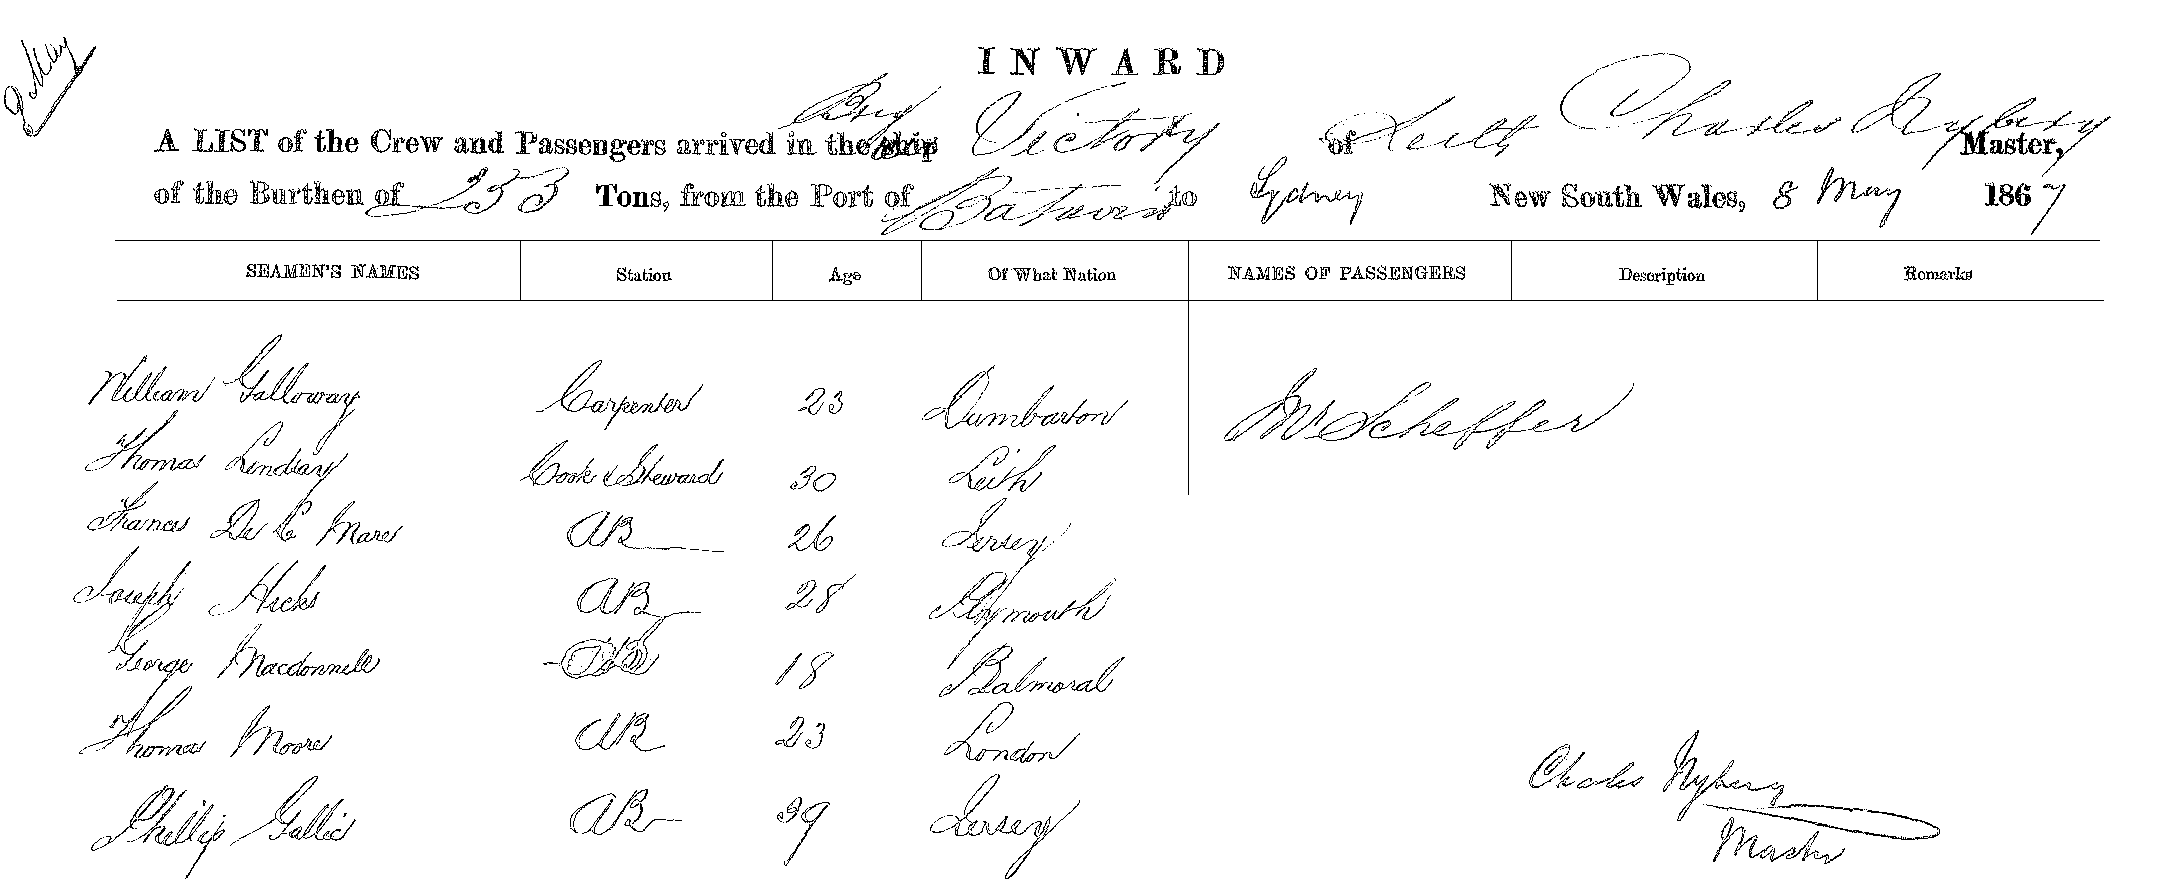 9 May
INWARD
A LIST of the Crew and Passengers arrived in the ship Brig Victory of Leith Charles Nyberg Master,
of the Burthen of 253 Tons, from the Port of Batavia to Sydney New South Wales, 8 May 1867
SEAMEN'S NAMES Station Age Of What Nation NAMES OF PASSENGERS Description Remarks
William Galloway Carpenter 23 Dumbarton Mr Scheffer
Thomas Lindsay Cook & Steward 30 Leith
Frances De La Mare AB 26 Jersey
Joseph Hicks AB 28 Plymouth
George Macdonnell 18 Balmoral
Thomas Moore AB 23 London
Phillip Gallic AB 39 Jersey
Charles Nyberg
Master